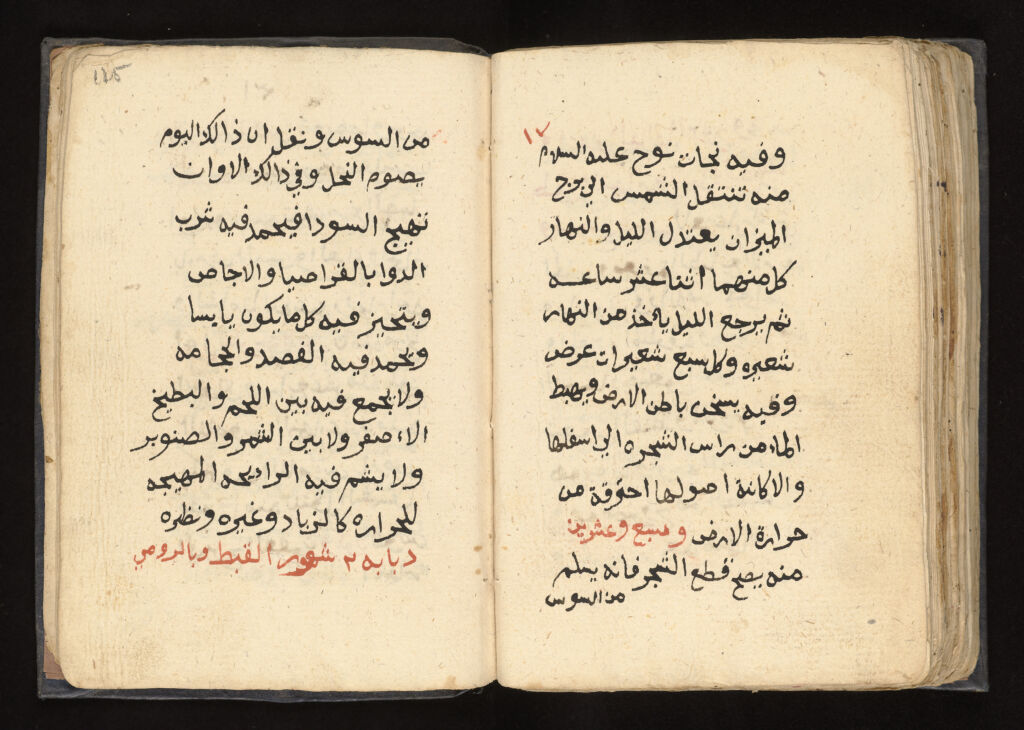 ١٧
وفيه نجات نوح عليه السلام
منه تنتقل الشمس الي برج
الميزان يعتدل الليل والنهار
كل منهما اثنا عشر ساعه
ثم يرجع الليل ياخذ من النهار
شعيره وكل سبع شعيرات عرض
وفيه يسخن باطن الارض ويهبط
الماء من راس الشجره الي اسفلها
والا كانة اصولها احترقة من
حرارة الارض وسبع وعشرين
منه يصح قطع الشجر فانه يسلم
من السوس
١٢٥
من السوس ونقل ان ذالك اليوم
يصوم النحل وفي ذالك الاوان
تهيج السودا فيحمد فيه شرب
الدوا بالقراصيا والاجاص
ويتحيز فيه كل ما يكون يابسا
ويحمد فيه الفصد والحجامه
ولا يجمع فيه بين اللحم والبطيخ
الاصفر ولا بين الثمر والصنوبر
ولا يشم فيه الرايحه المهيجه
للحراره كالزباد وغيره ونظره
د بابه ٢ شهور القبط وبالرومي